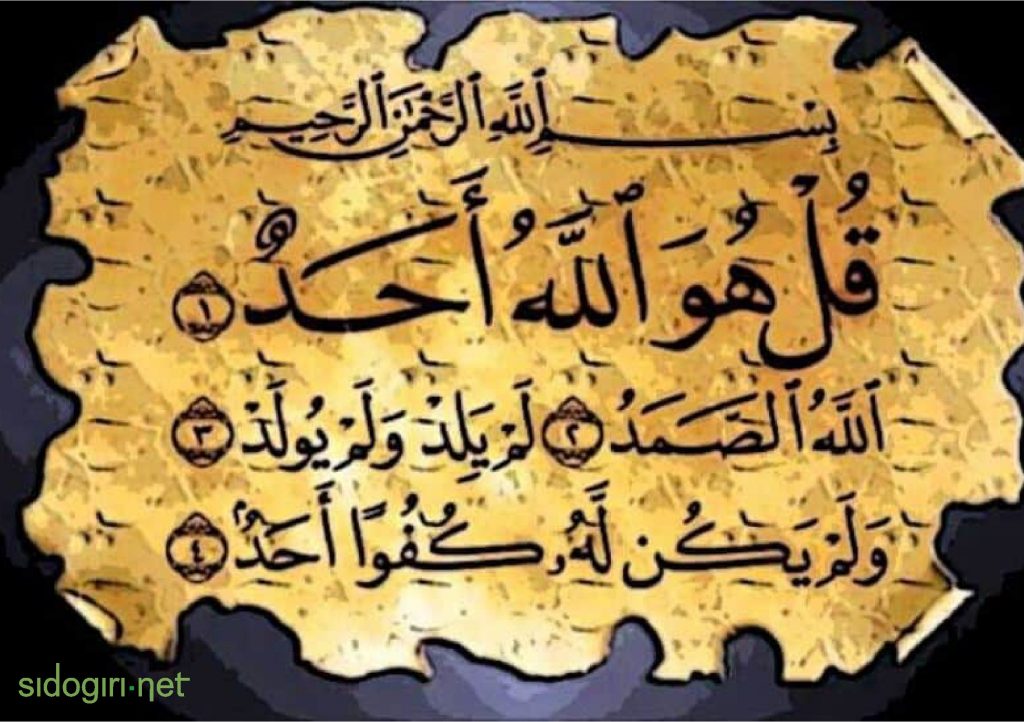 بِسْمِ ٱللَّهِ ٱلرَّحْمَٰنِ ٱلرَّحِيمِ
قُلْ هُوَ ٱللَّهُ أَحَدٌ ١
ٱللَّهُ ٱلصَّمَدُ ٢ لَمْ يَلِدْ وَلَمْ يُولَدْ ٣
وَلَمْ يَكُن لَّهُۥ كُفُوًا أَحَدٌۢ ٤
sidogiri.net